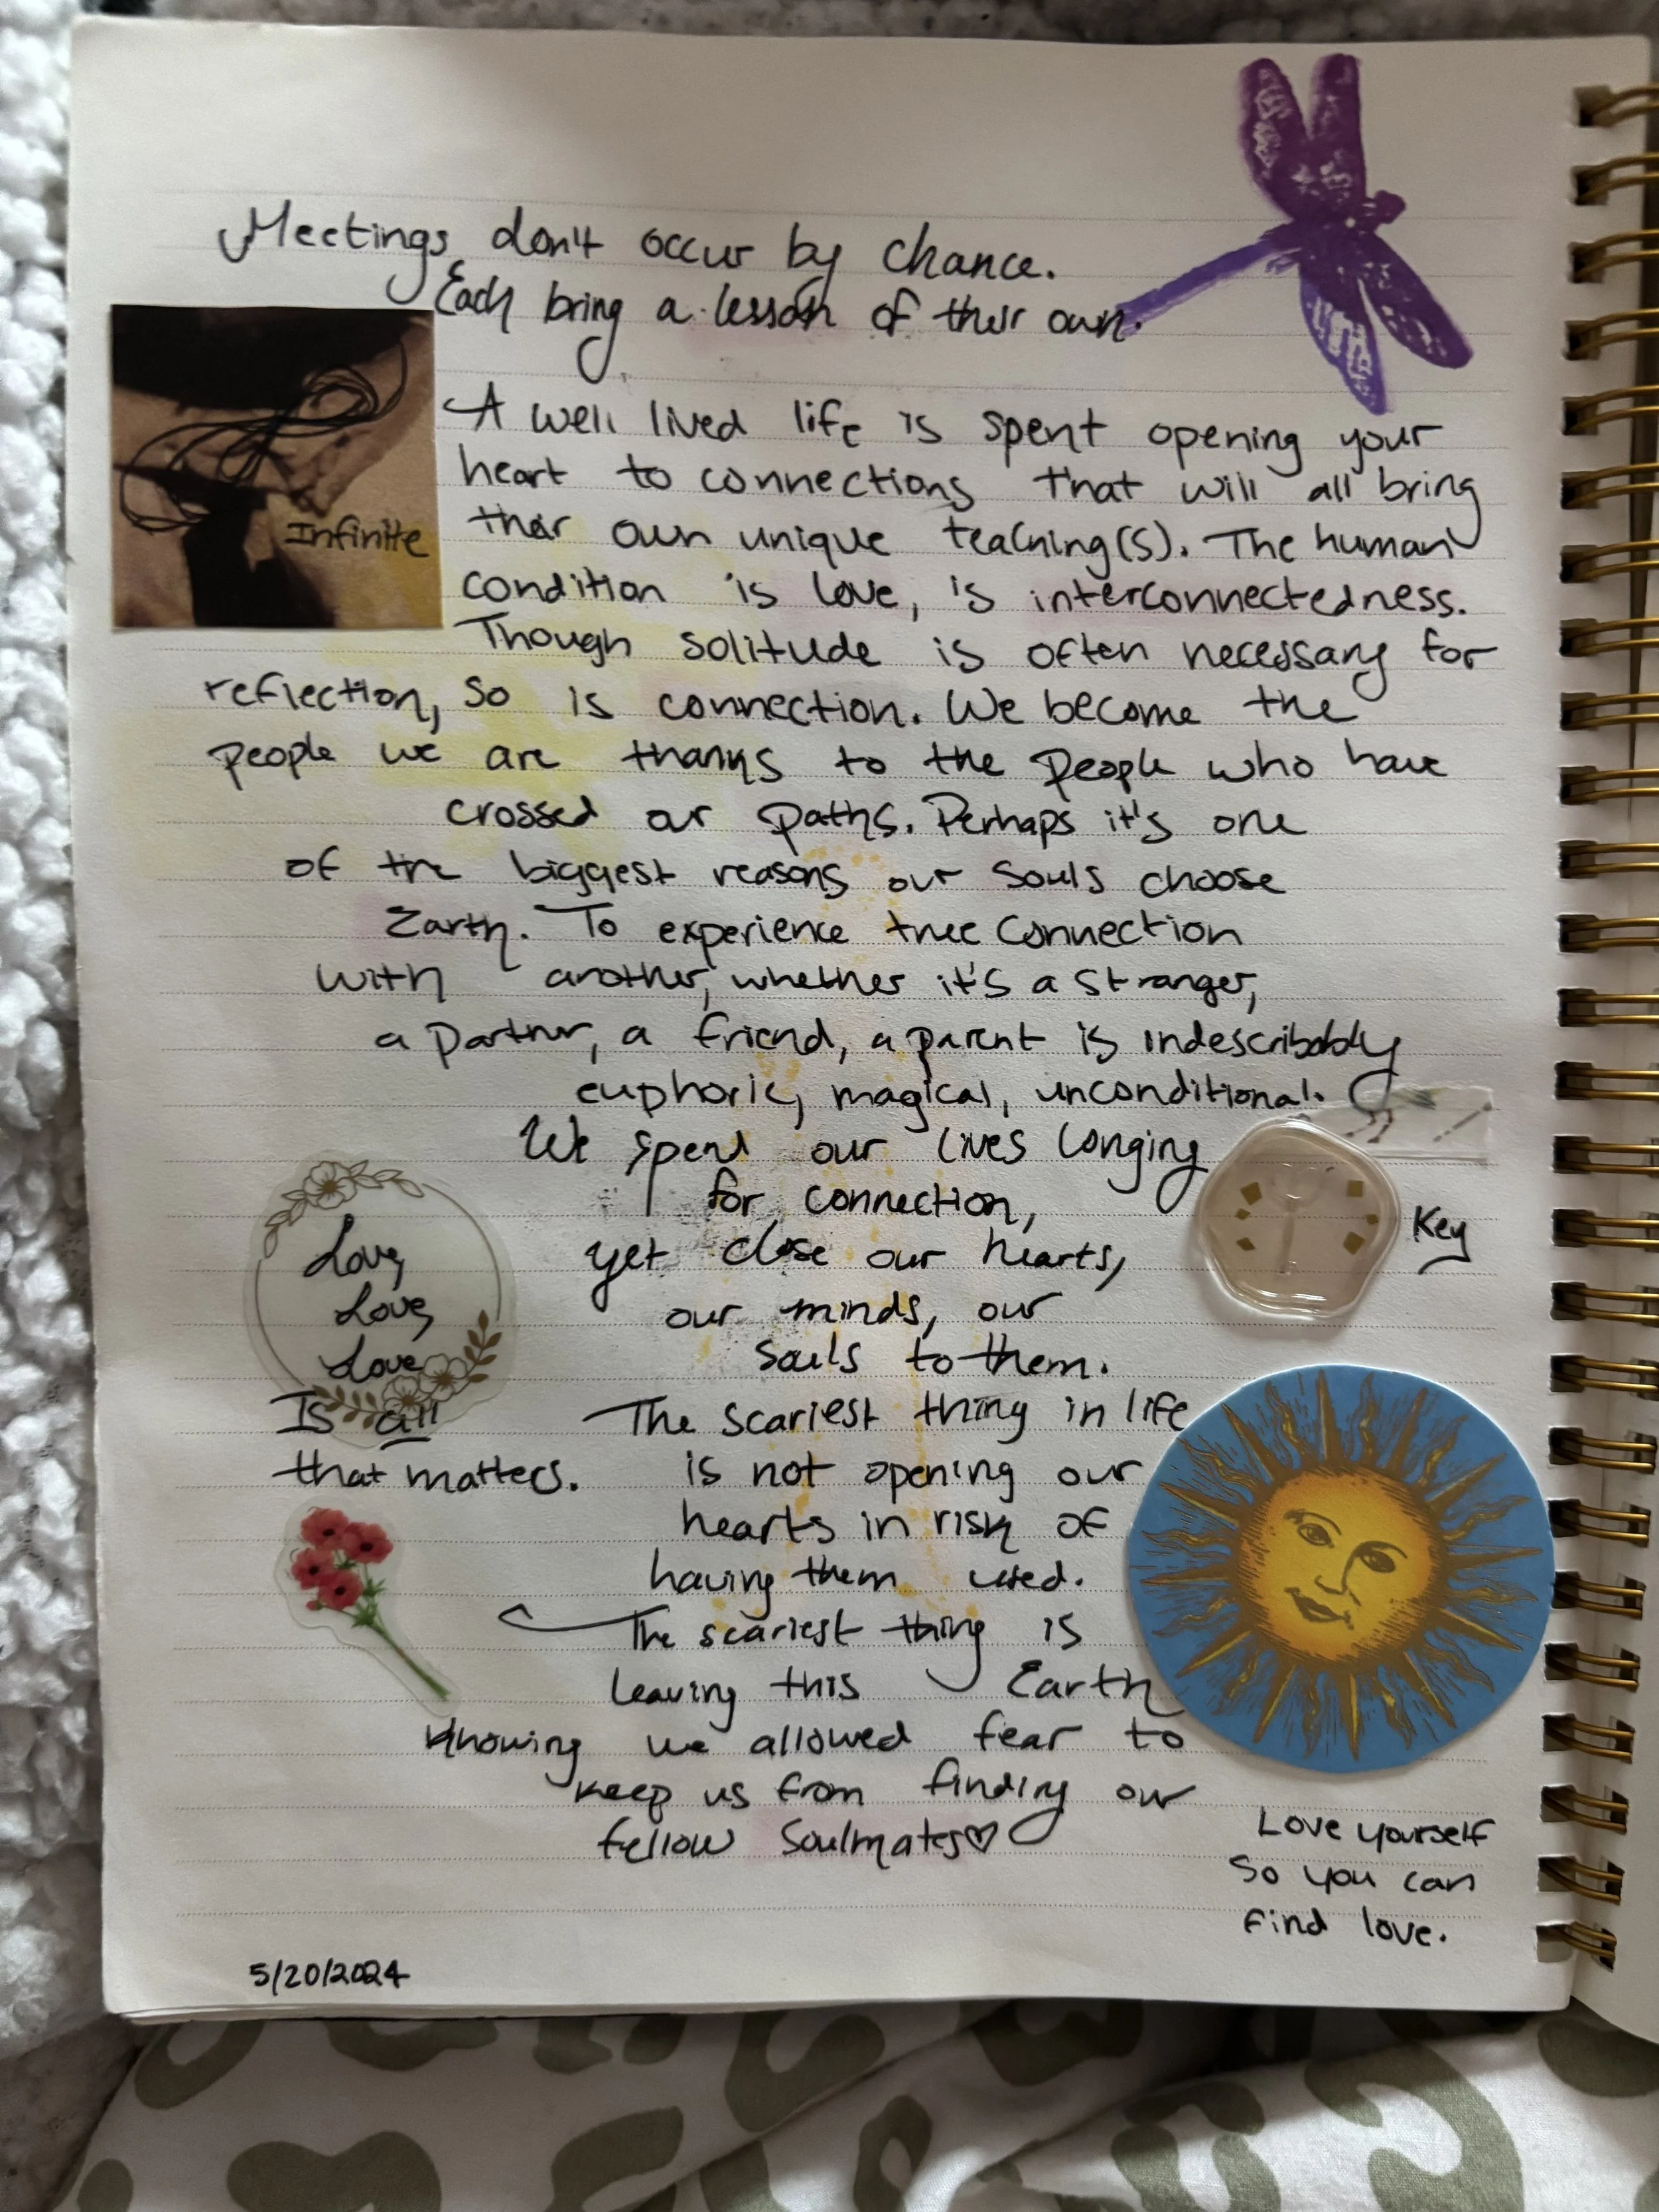 Meetings don't occur by chance.
Each bring a lesson of their own.
A well lived life is spent opening your
heart to connections that will all bring
Infinite
their own unique teaching(s). The human
condition is love, is interconnectedness.
Though solitude is often necessary for
reflection, so is connection. We become the
people we are thanks to the people who have
crossed our paths. Perhaps it's one
of the biggest reasons our souls choose
Earth. To experience true connection
with another, whether it's a stranger,
a partner, a friend, a parent is indescribably
euphoric, magical, unconditional.
We spend our lives longing
for connection,
yet close our hearts,
our minds, our
souls to them.
Key
Love,
Love,
Love
Is all
that matters.
The scariest thing in life
is not opening our
hearts in risk of
having them used.
The scariest thing is
leaving this Earth
knowing we allowed fear to
keep us from finding our
fellow Soulmates♡
Love yourself
so you can
find love.
5/20/2024